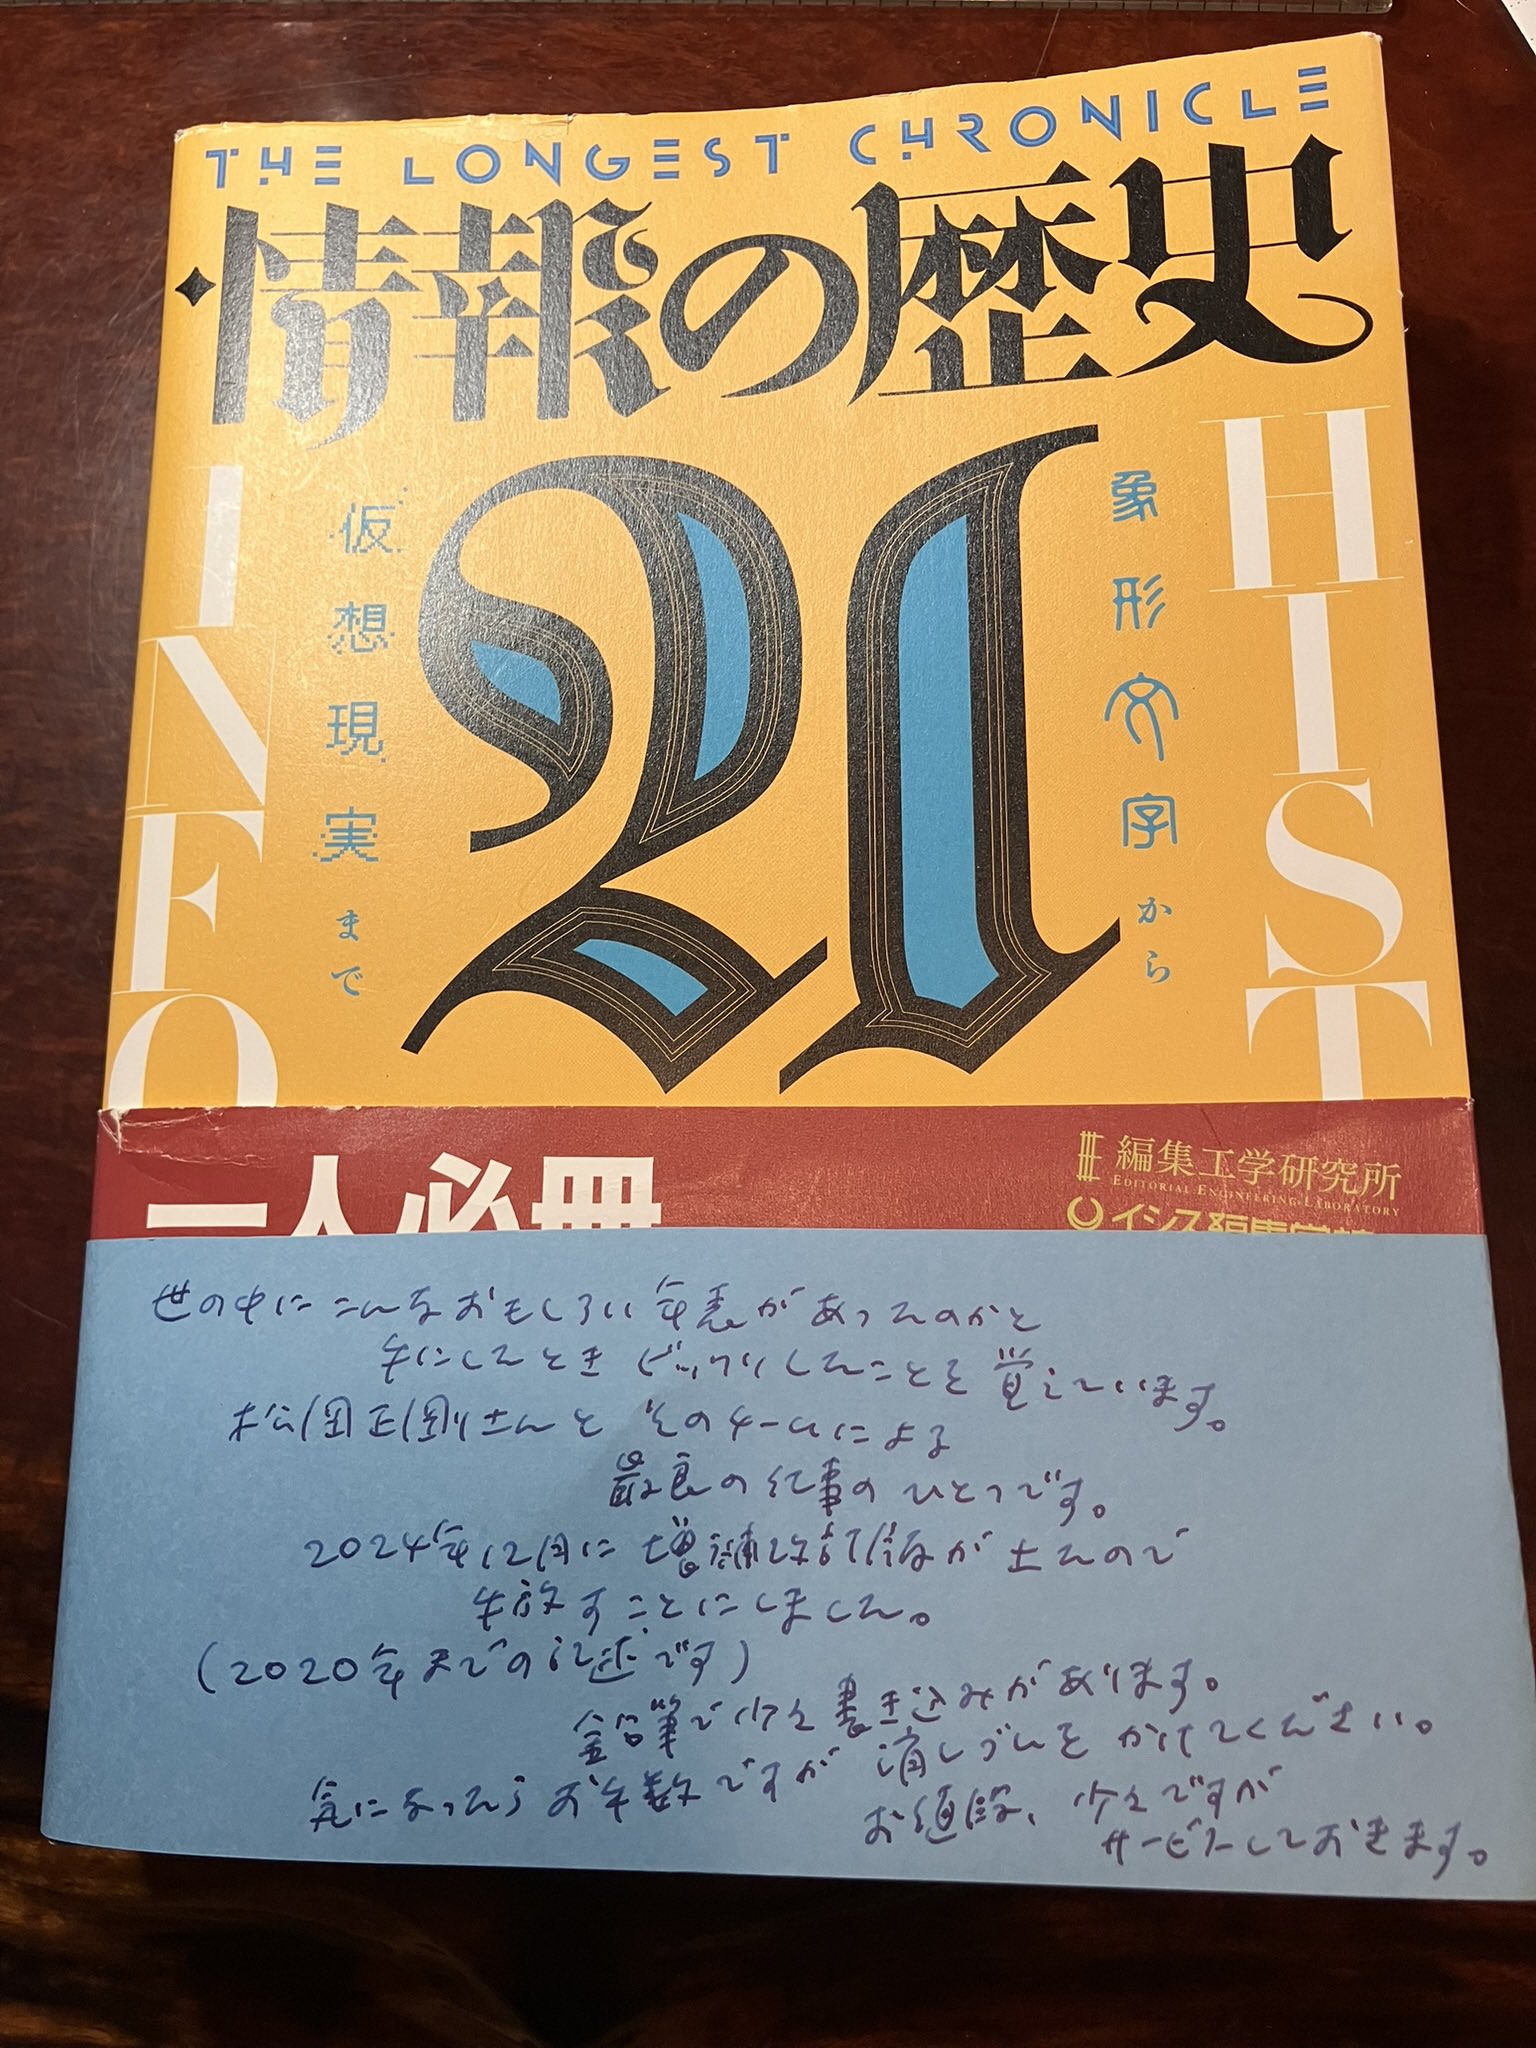 THE LONGEST CHRONICLE
情報の歴史
21
象形文字から
仮想現実まで
HIST
INFO
一人必冊
編集工学研究所
EDITORIAL ENGINEERING LABORATORY
イシス編集学校
世の中にこんなおもしろい年表があったのかと
手にしたときビックリしたことを覚えています。
松岡正剛さんとそのチームによる
最良の仕事のひとつです。
2024年12月に増補改訂版が出たので
手放すことにしました。
(2020年までの記述です)
鉛筆で少々書き込みがあります。
気になったらお手数ですが消しゴムをかけてください。
お値段、少々ですが
サービスしておきます。